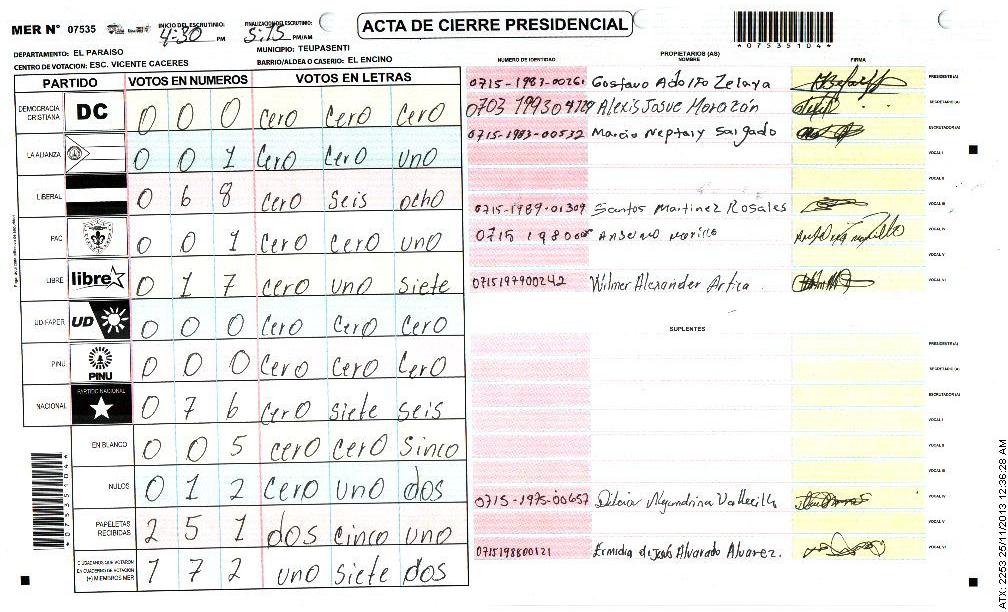 MER N° 07535 INICIO DEL ESCRUTINIO: 4:30 PM FINALIZACION DEL ESCRUTINIO: 5:15 PM/AM
ACTA DE CIERRE PRESIDENCIAL
*07535104*
DEPARTAMENTO: EL PARAISO MUNICIPIO: TEUPASENTI
CENTRO DE VOTACION: ESC. VICENTE CACERES BARRIO/ALDEA O CASERIO: EL ENCINO
PARTIDO VOTOS EN NUMEROS VOTOS EN LETRAS
DEMOCRACIA CRISTIANA DC 0 0 0 cero cero cero
LA ALIANZA 0 0 1 cero cero uno
LIBERAL 0 6 8 cero seis ocho
PAC 0 0 1 cero cero uno
LIBRE libre 0 1 7 cero uno siete
UD-FAPER UD 0 0 0 cero cero cero
PINU PINU 0 0 0 cero cero cero
NACIONAL PARTIDO NACIONAL 0 7 6 cero siete seis
EN BLANCO 0 0 5 cero cero sinco
NULOS 0 1 2 cero uno dos
PAPELETAS RECIBIDAS 2 5 1 dos cinco uno
CIUDADANOS QUE VOTARON EN CUADERNO DE VOTACION (+) MIEMBROS MER 1 7 2 uno siete dos
*07535104*
PROPIETARIOS (AS)
NUMERO DE IDENTIDAD NOMBRE FIRMA
0715-1987-0026 Gustavo Adolfo Zelaya PRESIDENTE(A)
0703 1993 04 Alexis Josue Morazán SECRETARIO(A)
0715-1983-00532 Marcio Neptaly Salgado ESCRUTADOR(A)
VOCAL I
VOCAL II
0715-1989-01309 Santos Martinez Rosales VOCAL III
0715 1980 Anselmo VOCAL IV
VOCAL V
0715197900242 Wilmer Alexander Artica VOCAL VI
SUPLENTES
PRESIDENTE(A)
SECRETARIO(A)
ESCRUTADOR(A)
VOCAL I
VOCAL II
VOCAL III
0715-1975-00657 VOCAL IV
VOCAL V
0715198800121 Ermidia de Jesús Alvarado Alvarez. VOCAL VI
ATX: 2253 25/11/2013 12:36:28 AM